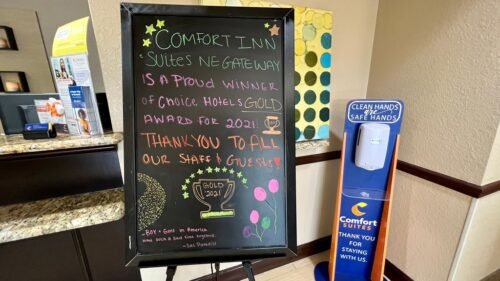 COMFORT INN
& SUITES NE GATEWAY
IS A PROUD WINNER
OF CHOICE HOTELS GOLD
AWARD FOR 2021!
THANK YOU TO ALL
OUR STAFF & GUESTS!
GOLD
2021
- BOY + GIRLS IN AMERICA
HAVE SUCH A SAD TIME TOGETHER.
- SAL PARADISE
CLEAN HANDS
are
SAFE HANDS
COMFORT
SUITES
THANK YOU
FOR
STAYING
WITH US